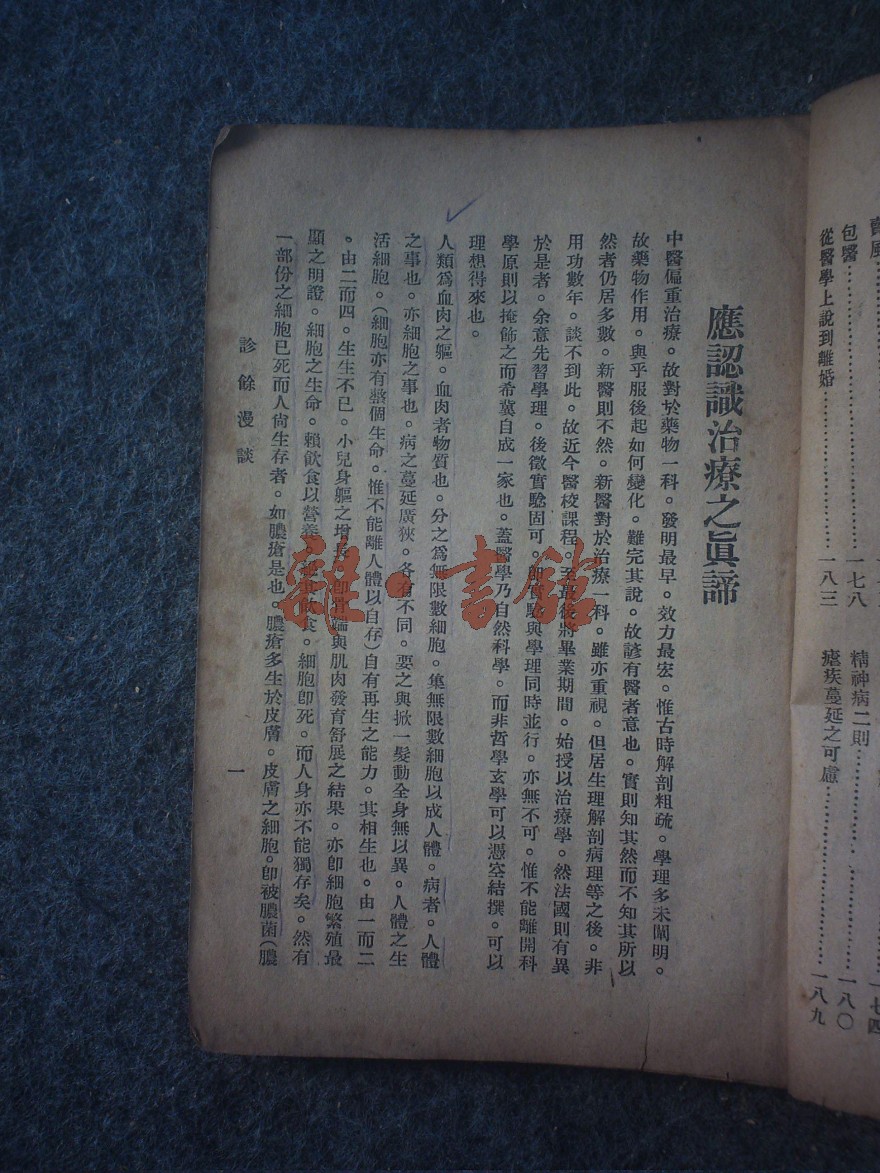 應認識治療之眞諦
中醫偏重治療。故對於藥物一科。發明最早。效力最宏。惟古時解剖粗疏。學理多未闡明。
故藥物作用。與乎服後起如何變化。難完其說。故諺有醫者意也。實則知其然而不知其所以
然者仍居多數。新醫則不然。新醫對於治療一科。雖亦重視。但居生理解剖病理等之後。非
用功數年。談不到此。故近今醫校課程。至最後將畢業期間。始授以治療學。然法國則有異
於是者。余意先習學理。後徵實騐固可。卽實騐與學理同時並行。亦無不可。惟不能離開科
學原則以掩飾之而希冀自成一家也。蓋醫學乃自然科學。而非哲學玄學可以憑空結撰。可以
理想得來也。
人類爲血肉之軀。血肉者物質也。分之爲無限數細胞。集無限數細胞以成人體。病者。人體
之事也。亦細胞之事也。病之蔓延廣狹。各有不同。要之與掀一髮動全身無以異。人體之生
活細胞。(細胞亦有整個生命。惟不能離人體以自存)自有再生之能力。其相生也。由一而二
。由二而四。生生不已。小兒身軀之增長。卽骨端與肌肉發育舒展之結果。亦卽細胞繁殖最
顯之明證。細胞之生命。賴飲食以營養。飲食。細胞卽死。而人身亦不能獨存矣。然有
一部份之細胞已死而人尙生存者。如膿瘡是也。膿瘡多生於皮膚。皮膚之細胞。卽被膿菌(膿
診餘漫談
一
雜·書館
賣風
一七四
包醫……一七八
從醫學上說到離婚……一八三
精神病二則……一八〇
瘧疾蔓延之可慮……一八九